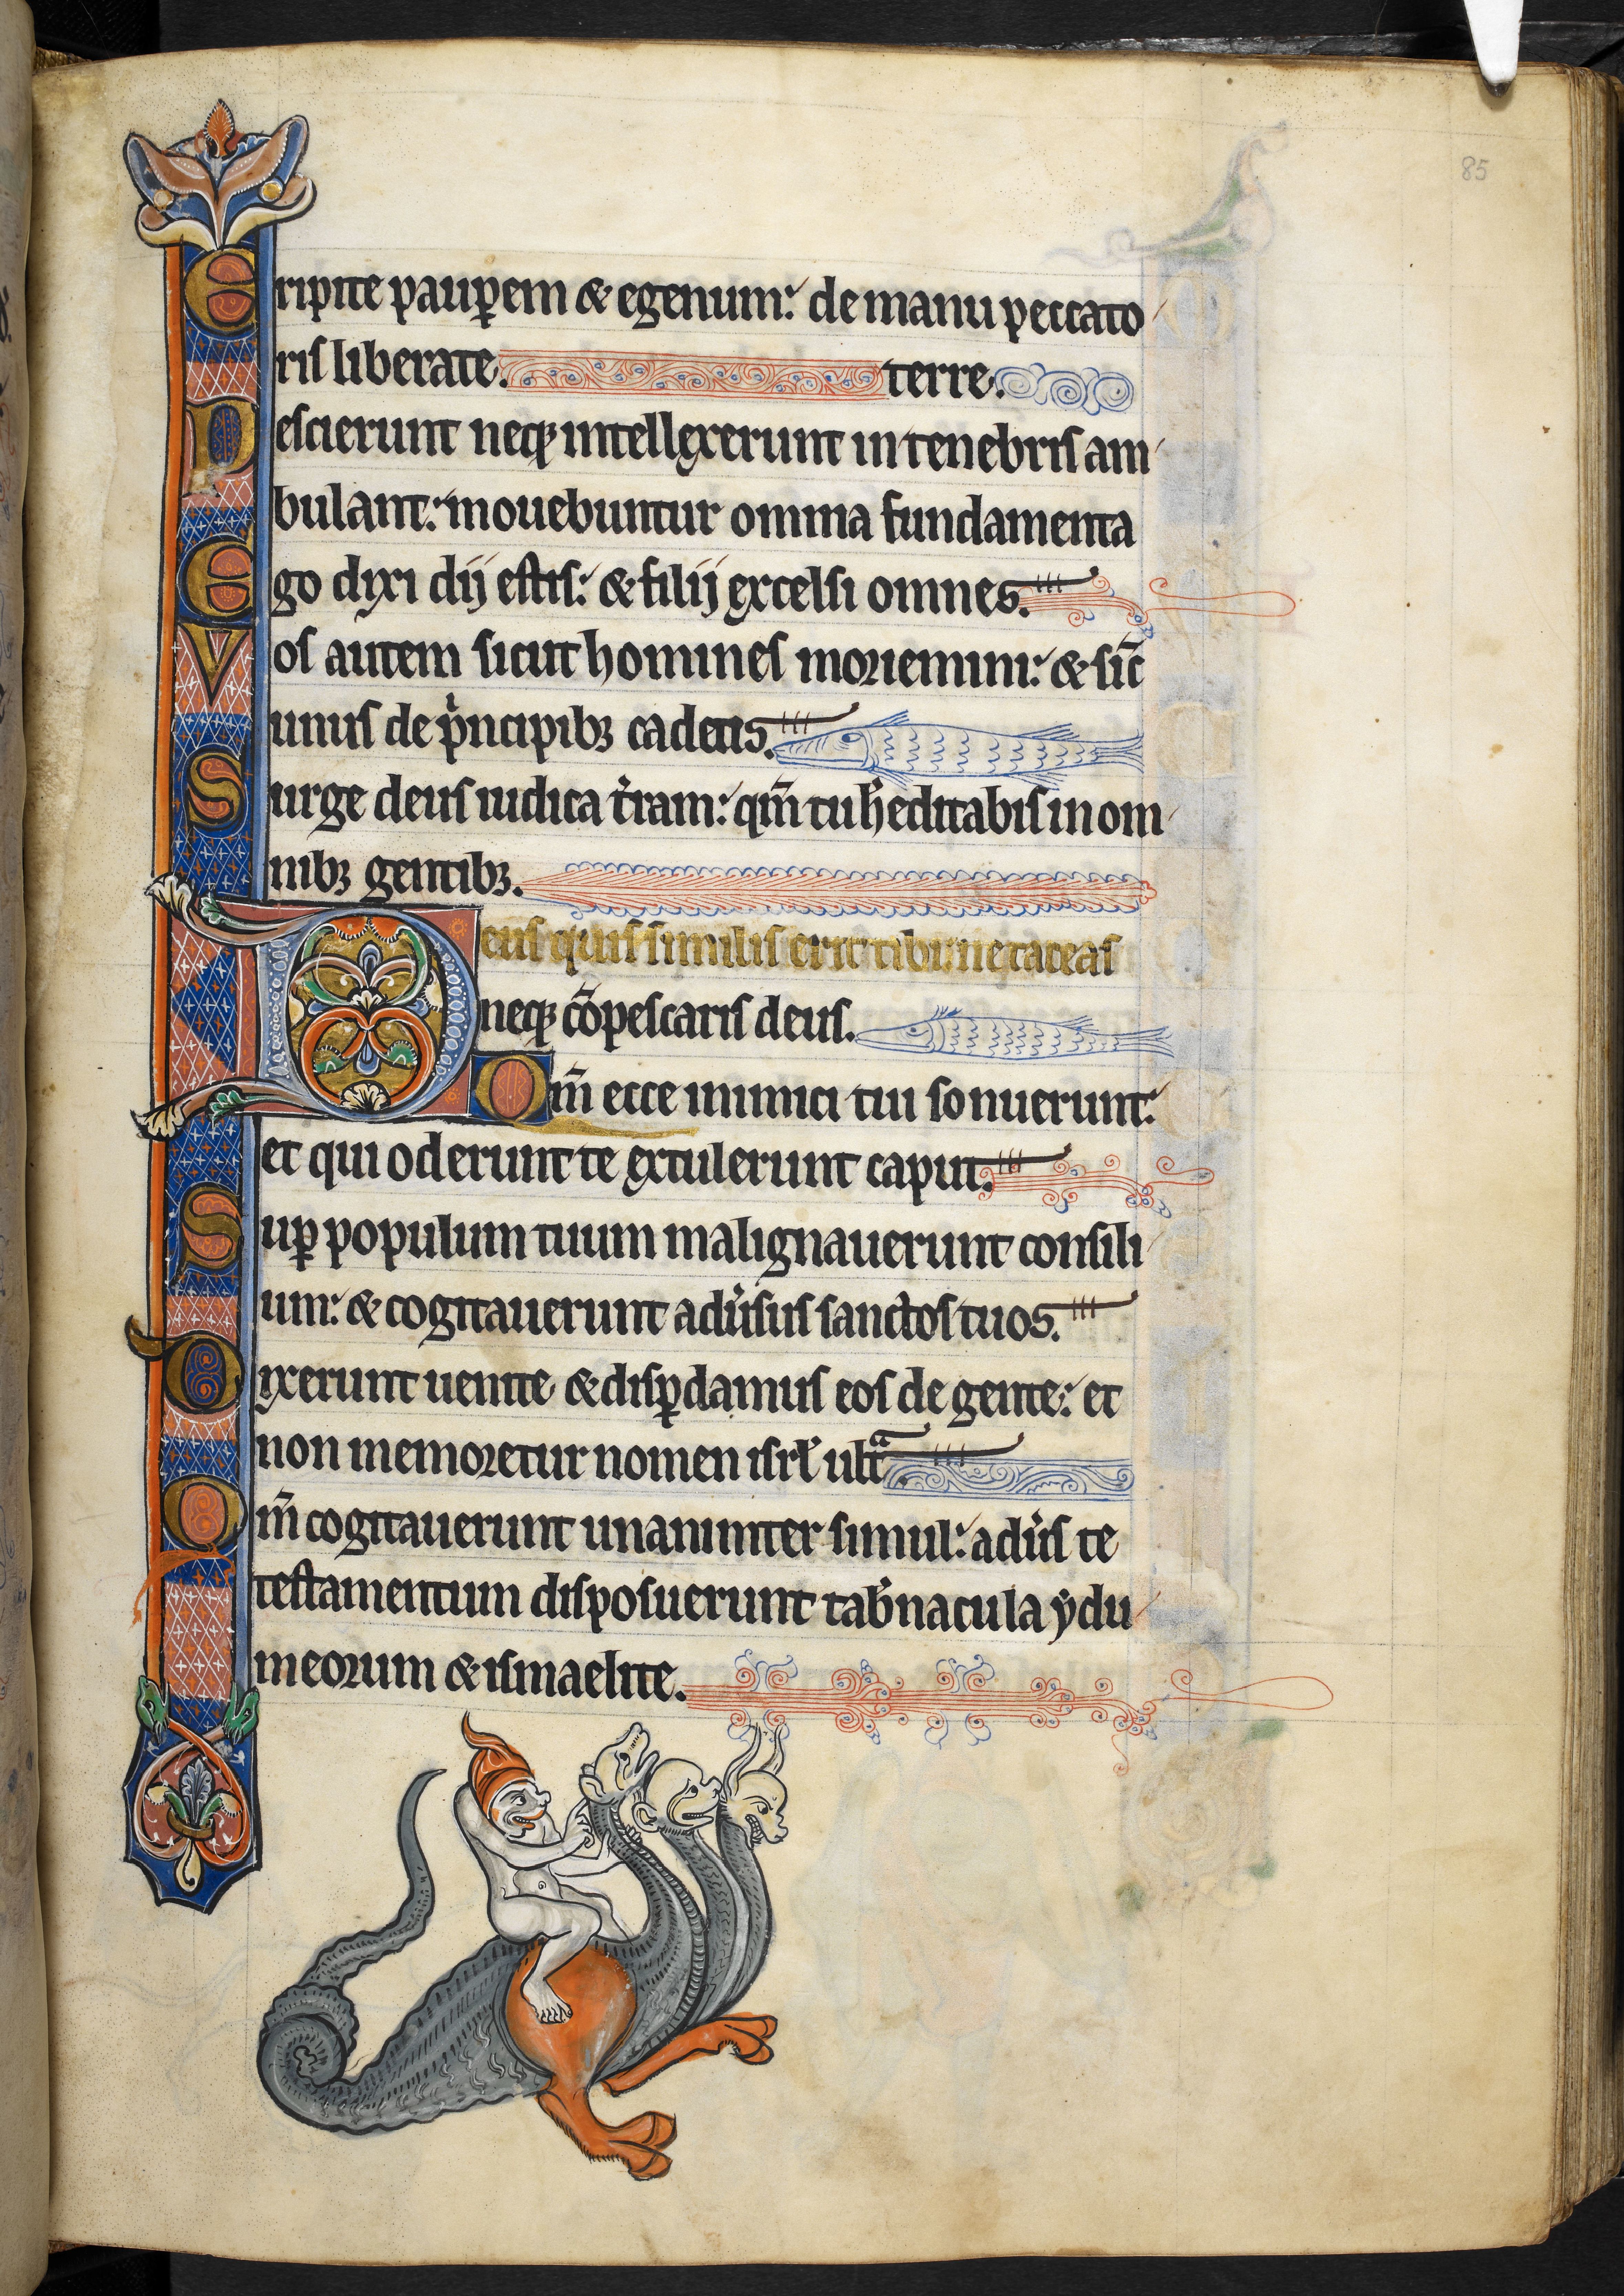 85
Eripite paup̲em & egenum: de manu peccato
ris liberate. terre.
Nescierunt neq; intellexerunt in tenebris am
bulant: mouebuntur omnia fundamenta
Ego dixi dij estis: & filij excelsi omnes.
Vos autem sicut homines moriemini: & sic̄
unus de pͥncipib; cadetis.
Surge deus iudica t̓ram: qm̄ tu h̓editabis in om
nib; gentib;.
Deus quis similis erit tibi: ne taceas
neq; cōpescaris deus.
Qm̄ ecce inimici tui sonuerunt:
et qui oderunt te extulerunt caput.
Sup̲ populum tuum malignauerunt consili
um: & cogitauerunt adu̓sus sanctos tuos.
Dixerunt uenite & disp̲damus eos de gente: et
non memoretur nomen isrł ultͣ.
Qm̄ cogitauerunt unanimiter simul: adu̓s te
testamentum disposuerunt tab̓nacula ẏdu
meorum & ismaelite.